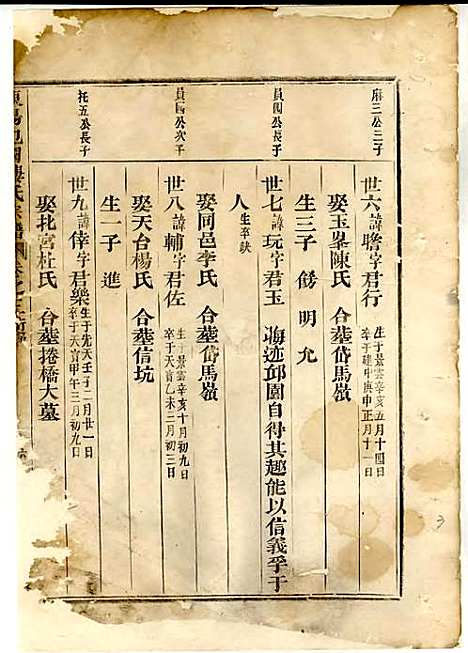 麻三公三子
世六諱瞻字君行 生于景雲辛亥五月十四日
卒于建中庚申正月十一日
娶玉峯陳氏 合葬岱馬嶺
生三子 明 允
員四公長子
世七諱玩字君玉 海迹邱園自得其趣能以信義孚于
人生卒缺
娶同邑李氏 合葬岱馬嶺
員四公次子
世八諱輔字君佐 生于景雲辛亥十月初九日
卒于天寶乙未二月初三日
娶天台楊氏 合葬信坑
生一子 進
托五公長子
世九諱倖字君樂 生于先天壬子二月廿一日
卒于天寶甲午三月初九日
娶北宮杜氏 合葬捲橋大墓
陽 氏宗譜